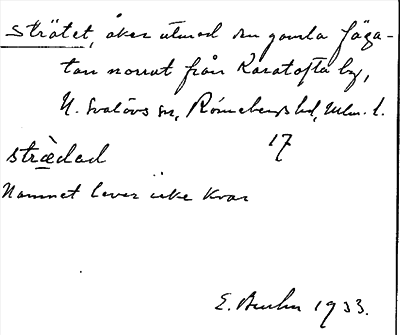 strätet, åker utmed den gamla fäga-
tan norrut från Karatofta by,
N. Svalövs sn, Rönnebergs hd, Mlm. l.
17
strædad
Namnet lever icke kvar
E. 1933.